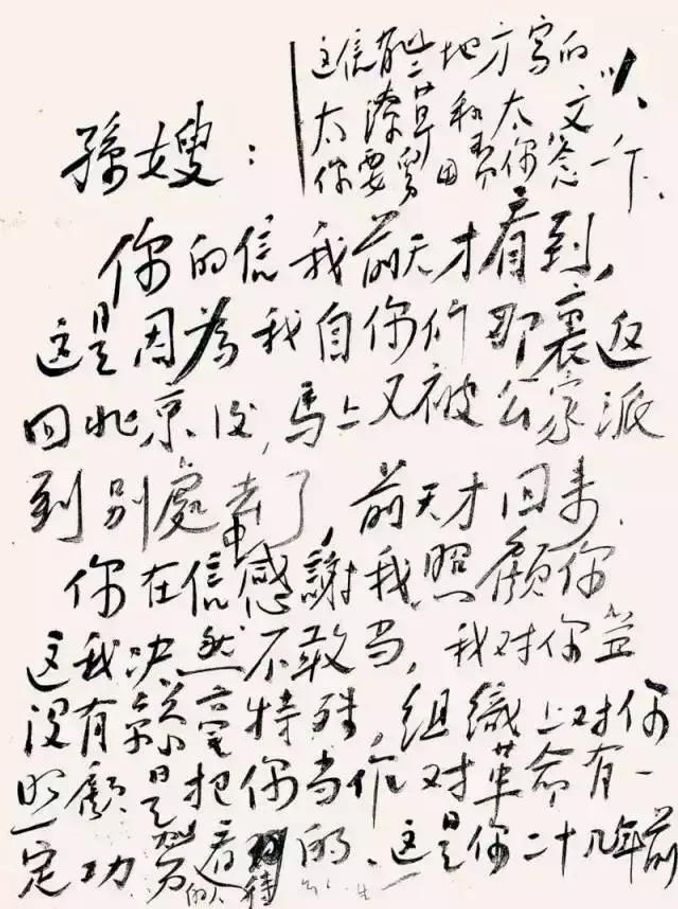 孫嫂：
这信有些地方寫的
太潦草和太文，
你要舅田帮你念一下。
你的信我前天才看到，
这是因為我自你们那裏返
回北京後，馬上又被公家派
到别處去了，前天才回来．
你在信中感謝我照顧你
这我决然不敢当，我对你並
没有絲毫特殊，組織上对你
照顧是把你当作对革命有一
定功劳的人看待的、这是你二十几年前